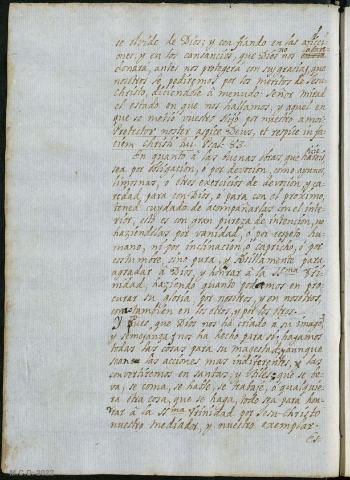 se olvide de Dios; y confiando en las aflicci-
ones, y en los cansancios, que Dios nos no aban-
donará, antes nos protegerá con su gracia, que
nosotros le pediremos por los meritos de Jesu
christo, diciendole à menudo: Señor mirad
el estado en que nos hallamos, y aquel en
que se metió vuestro Hijo por nuestro amor.
Protector noster aspice Deus, et respice in fa
ciem Christi tui. Psal. 83.
En quanto à las buenas obras, que haceis,
sea por obligacion, ò por devocion, como ayunos,
limosnas, ò otros exercicios de devocion, y ca-
ridad, para con Dios, ò para con el proximo,
tened cuydado de acompañarlas con el inte-
rior, esto es con gran pureza de intencion, no
haziendolas por vanidad, ò por respeto hu-
mano, ni por inclinacion, ò capricho, ò por
costumbre, sino pura, y sensillamente para
agradar à Dios, y honrar à la SSma Tri-
nidad, haziendo quanto podamos en pro-
curar su gloria, por nosotros, y en nosotros,
como tambien en los otros, y por los otros.
Y pues, que Dios nos ha criado à su imagen,
y semejanza y nos ha hecho para si, hagamos
todas las cosas para su magestad, y aunque
sean las acciones mas indiferentes, las
convertiremos en santas, y utiles: que se be-
va, se coma, se hable, se trabaje, ò qualquie-
ra otra cosa, que se haga, todo sea para hon-
rar à la SSma Trinidad por Jesu-Christo
nuestro mediador, y nuestro exemplar.
Es-